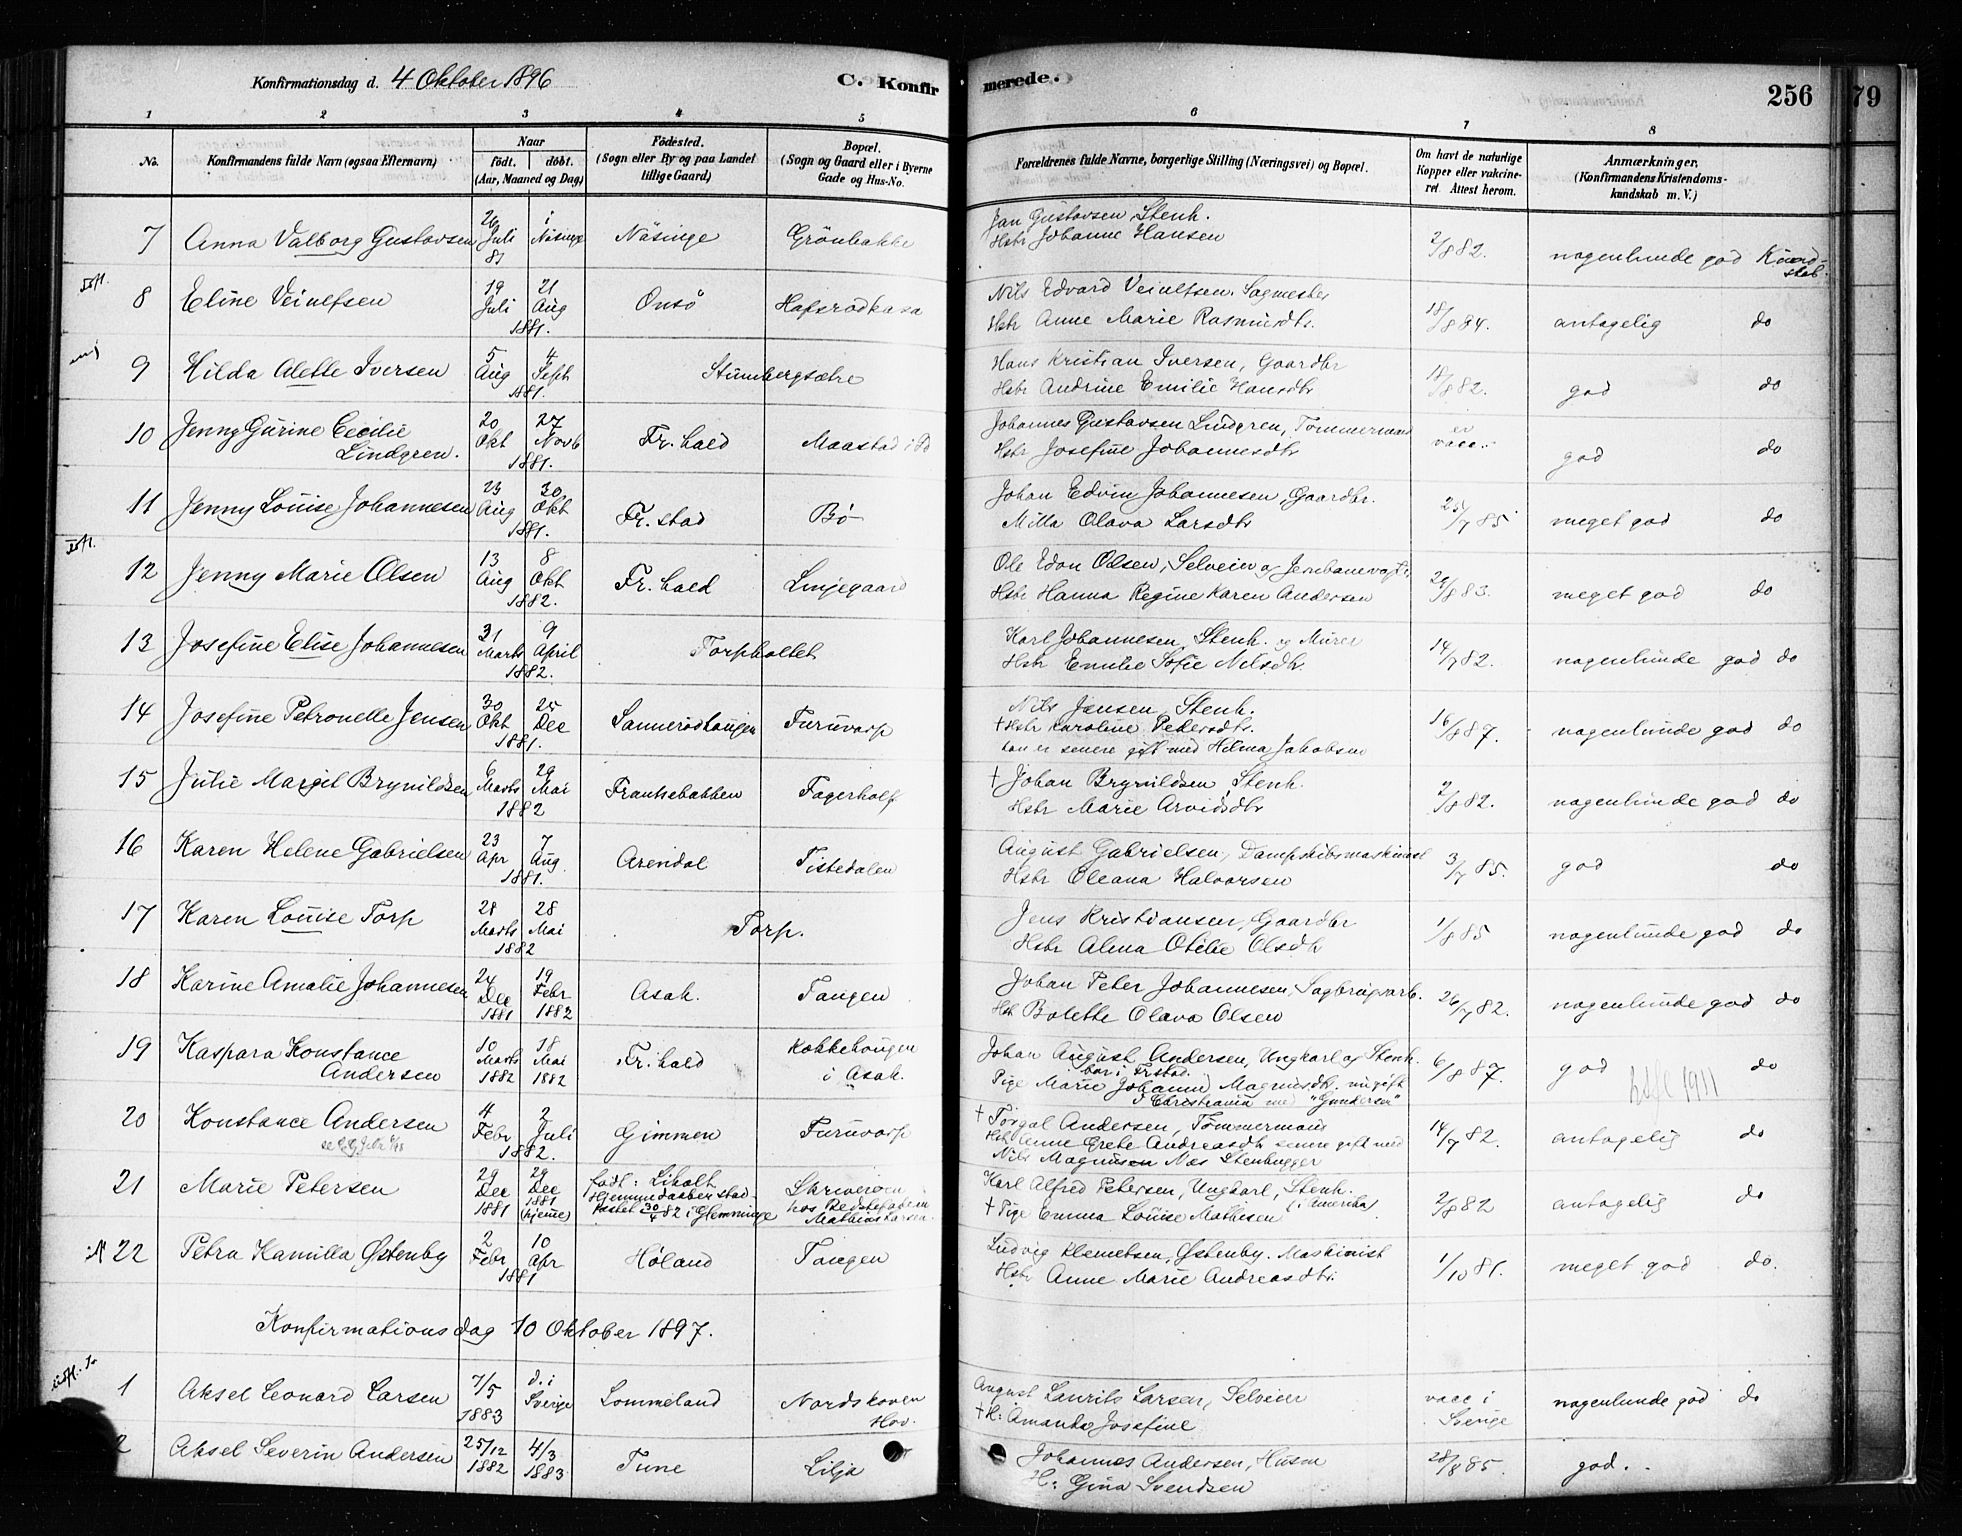 Konfirmationsdag d. 4 Oktober 1896 C. Konfirmerede. 256 79
1 2 3 4 5 6 7 8
No. Konfirmandens fulde Navn (ogsaa Efternavn) Naar født. døbt. (Aar, Maaned og Dag) Fødested. (Sogn eller By og paa Landet tillige Gaard) Bopæl. (Sogn og Gaard eller i Byerne Gade og Hus-No. Forældrenes fulde Navne, borgerlige Stilling (Næringsvei) og Bopæl. Om havt de naturlige Kopper eller vakcineret. Attest herom. Anmærkninger, (Konfirmandens Kristendomskundskab m. V.)
7 Anna Valborg Gustavsen 26 Juli 81 i Näsinge Näsinge Grönbakke Jan Gustavsen, Stenh. Hstr Johanne Hansen 2/8 82. nogenlunde god Kundskab
8 Eline Veiulfsen 19 Juli 21 Aug 1881. Onsö Hafsrødkasa Nils Edvard Veiulfsen, Sagmester Hstr Anne Marie Rasmusdtr. 18/8 84. antagelig do
9 Hilda Alette Iversen 5 Aug 4 Sept 1881. Stumbergsætre Hans Kristian Iversen, Gaardbr Hstr Andrine Emilie Hansdtr 18/8 82. god do
10 Jenny Gurine Cecilie Lindgren. 20 Okt 27 Novb 1881. Fr.hald Maastad i Id Johannes Gustavsen Lindgren, Tömmermand Hstr Josefine Johannesdtr ei vacc. god do
11 Jenny Louise Johannesen 23 Aug 30 Okt 1881. Fr.stad Bö Johan Edvin Johannesen, Gaardbr. Milla Olava Larsdtr 25/7 85 meget god do
12 Jenny Marie Olsen 13 Aug 8 Okt 1882. Fr.hald Linjegaard Ole Edon Olsen, Selveier og Jernbanevogt. Hstr Hanna Regine Karen Andersen 29/8 83. meget god do
13 Josefine Elise Johannesen 31 Marts 9 April 1882. Torpholtet Karl Johannesen, Stenh. og Murer Hstr Emilie Sofie Nilsdtr. 14/7 82. nogenlunde god do
14 Josefine Petronelle Jensen 30 Okt 26 Dec 1881. Sannerødhaugen Furuvarp Nils Jensen, Stenh. † Hstr Karoline Pedersdtr. han er senere gift med Hilma Jakobsen 16/8 87. nogenlunde god do
15 Julie Margit Brynildsen 6 Marts 29 Mai 1882 Frantsebakken Fagerholt † Johan Brynildsen, Stenh. Hstr Marie Arvidsdtr 2/8 82. nogenlunde god do
16 Karen Helene Gabrielsen 23 Apr 7 Aug. 1881. Arendal Tistedalen August Gabrielsen, Dampskibsmaskinist Hstr Oleana Halvorsen 3/7 85. god do
17 Karen Louise Torp 28 Marts 28 Mai 1882 Torp. Jens Kristiansen, Gaardbr Hstr Alma Otilie Olsdtr 1/8 85 nogenlunde god do
18 Karine Amalie Johannesen 24 Dec 1881 19 Febr 1882 Asak. Tangen Johan Peter Johannesen, Sagbrugsarb. Hstr Bolette Olava Olsen 26/7 82. nogenlunde god do
19 Kaspara Konstance Andersen 10 Marts 1882 18 Mai 1882 Fr.hald Kokkehougen i Asak. Johan August Andersen, Ungkarl og Stenh. bor i Frstad. Pige Marie Johanne Magnusdtr. nu gift i Christiania med "Gundersen" 6/8 87. god do 1911
20 Konstance Andersen 4 Febr 2 Juli 1882. Gimmen Furuvarp † Torgal Andersen, Tömmermand Hstr Anne Grete Andreasdtr senere gift med Nils Magnusen Næs Stenhugger 14/7 82. antagelig do
21 Marie Petersen 29 Dec 1881 29 Dec 1881 (hjemme) född: Liholt Hjemmedaaben stadfæstet 30/4 82 i Glemminge Skriveröen hos Bedstefaderen Mathias Larsen. Karl Alfred Petersen, Ungkarl, Stenh. (i Amerika) † Pige Emma Louise Mathisen 2/8 82 antagelig do
22 Petra Kamilla Østenby 2 Febr 10 Apr 1881 Höland Tangen Ludvig Klemetsen, Østenby. Maskinist Hstr Anne Marie Andreasdtr. 1/10 81. meget god do.
Konfirmationsdag 10 Oktober 1897.
1 Aksel Leonard Larsen 7/5 1883 d. i Sverige Lommeland Nordskoven Hov. August Laurits Larsen, Selveier † H: Amanda Josefine vacc i Sverige nogenlunde god do
2 Aksel Severin Andersen 25/12 1882 4/3 1883 Tune Lilja Johannes Andersen, Husm H: Gina Svendsen 28/8 85. god.